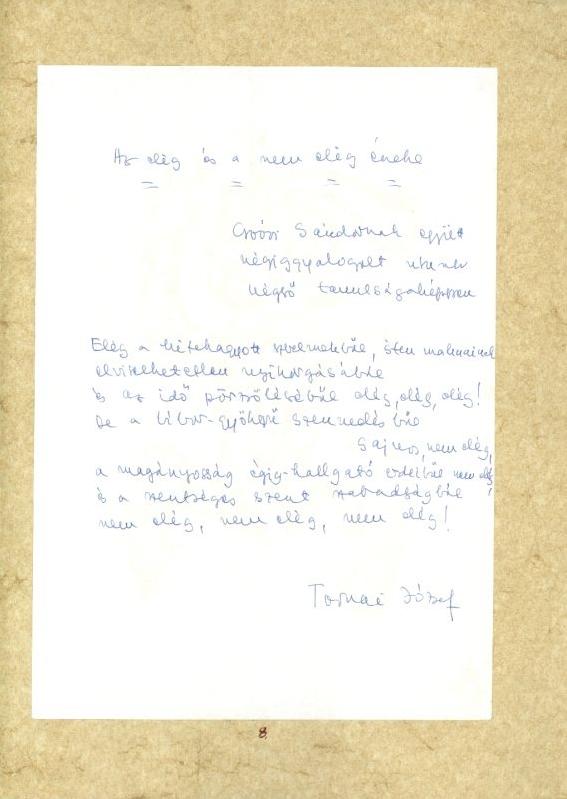 Az elég és a nem elég éneke
Csoóri Sándornak együtt
végiggyalogolt
végső tanulságaképpen
Elég a hitehagyott szerelmekből, isten malmainak
elviselhetetlen nyikorgásából
és az idő pörzsöléséből elég, elég, elég!
De a bibor-gyökerű szenvedésből
sajnos, nem elég,
a magányosság égig-hallgató erdeiből nem elég
és a szentséges szent szabadságból
nem elég, nem elég, nem elég!
Tornai József
8